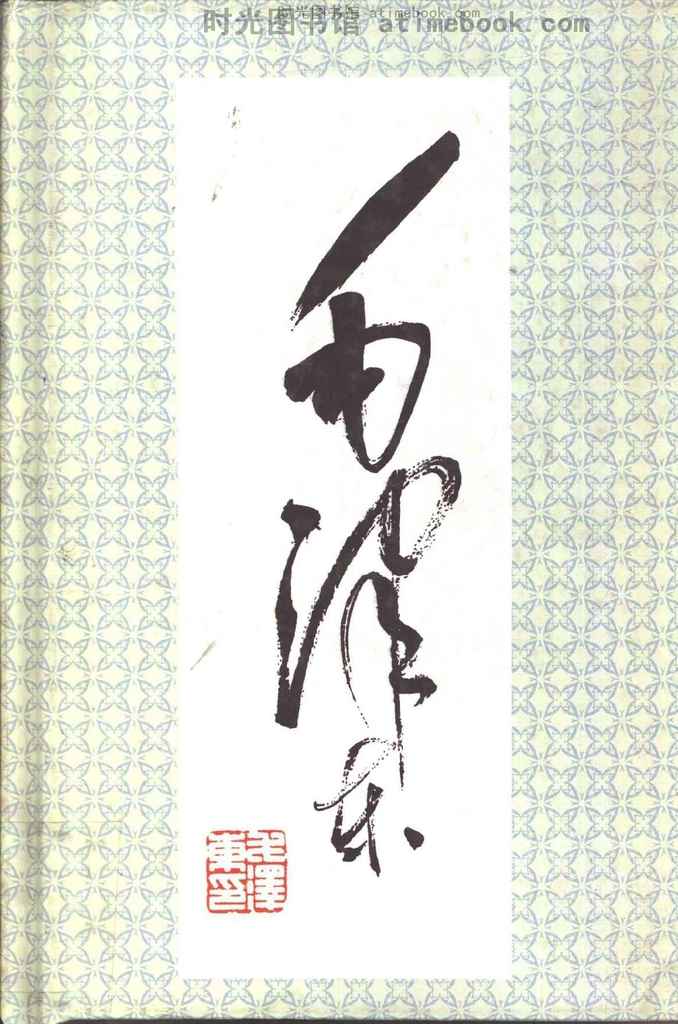 时光图书馆 atimebook.com
时光图书馆 atimebook.com
毛泽东
毛澤
東印